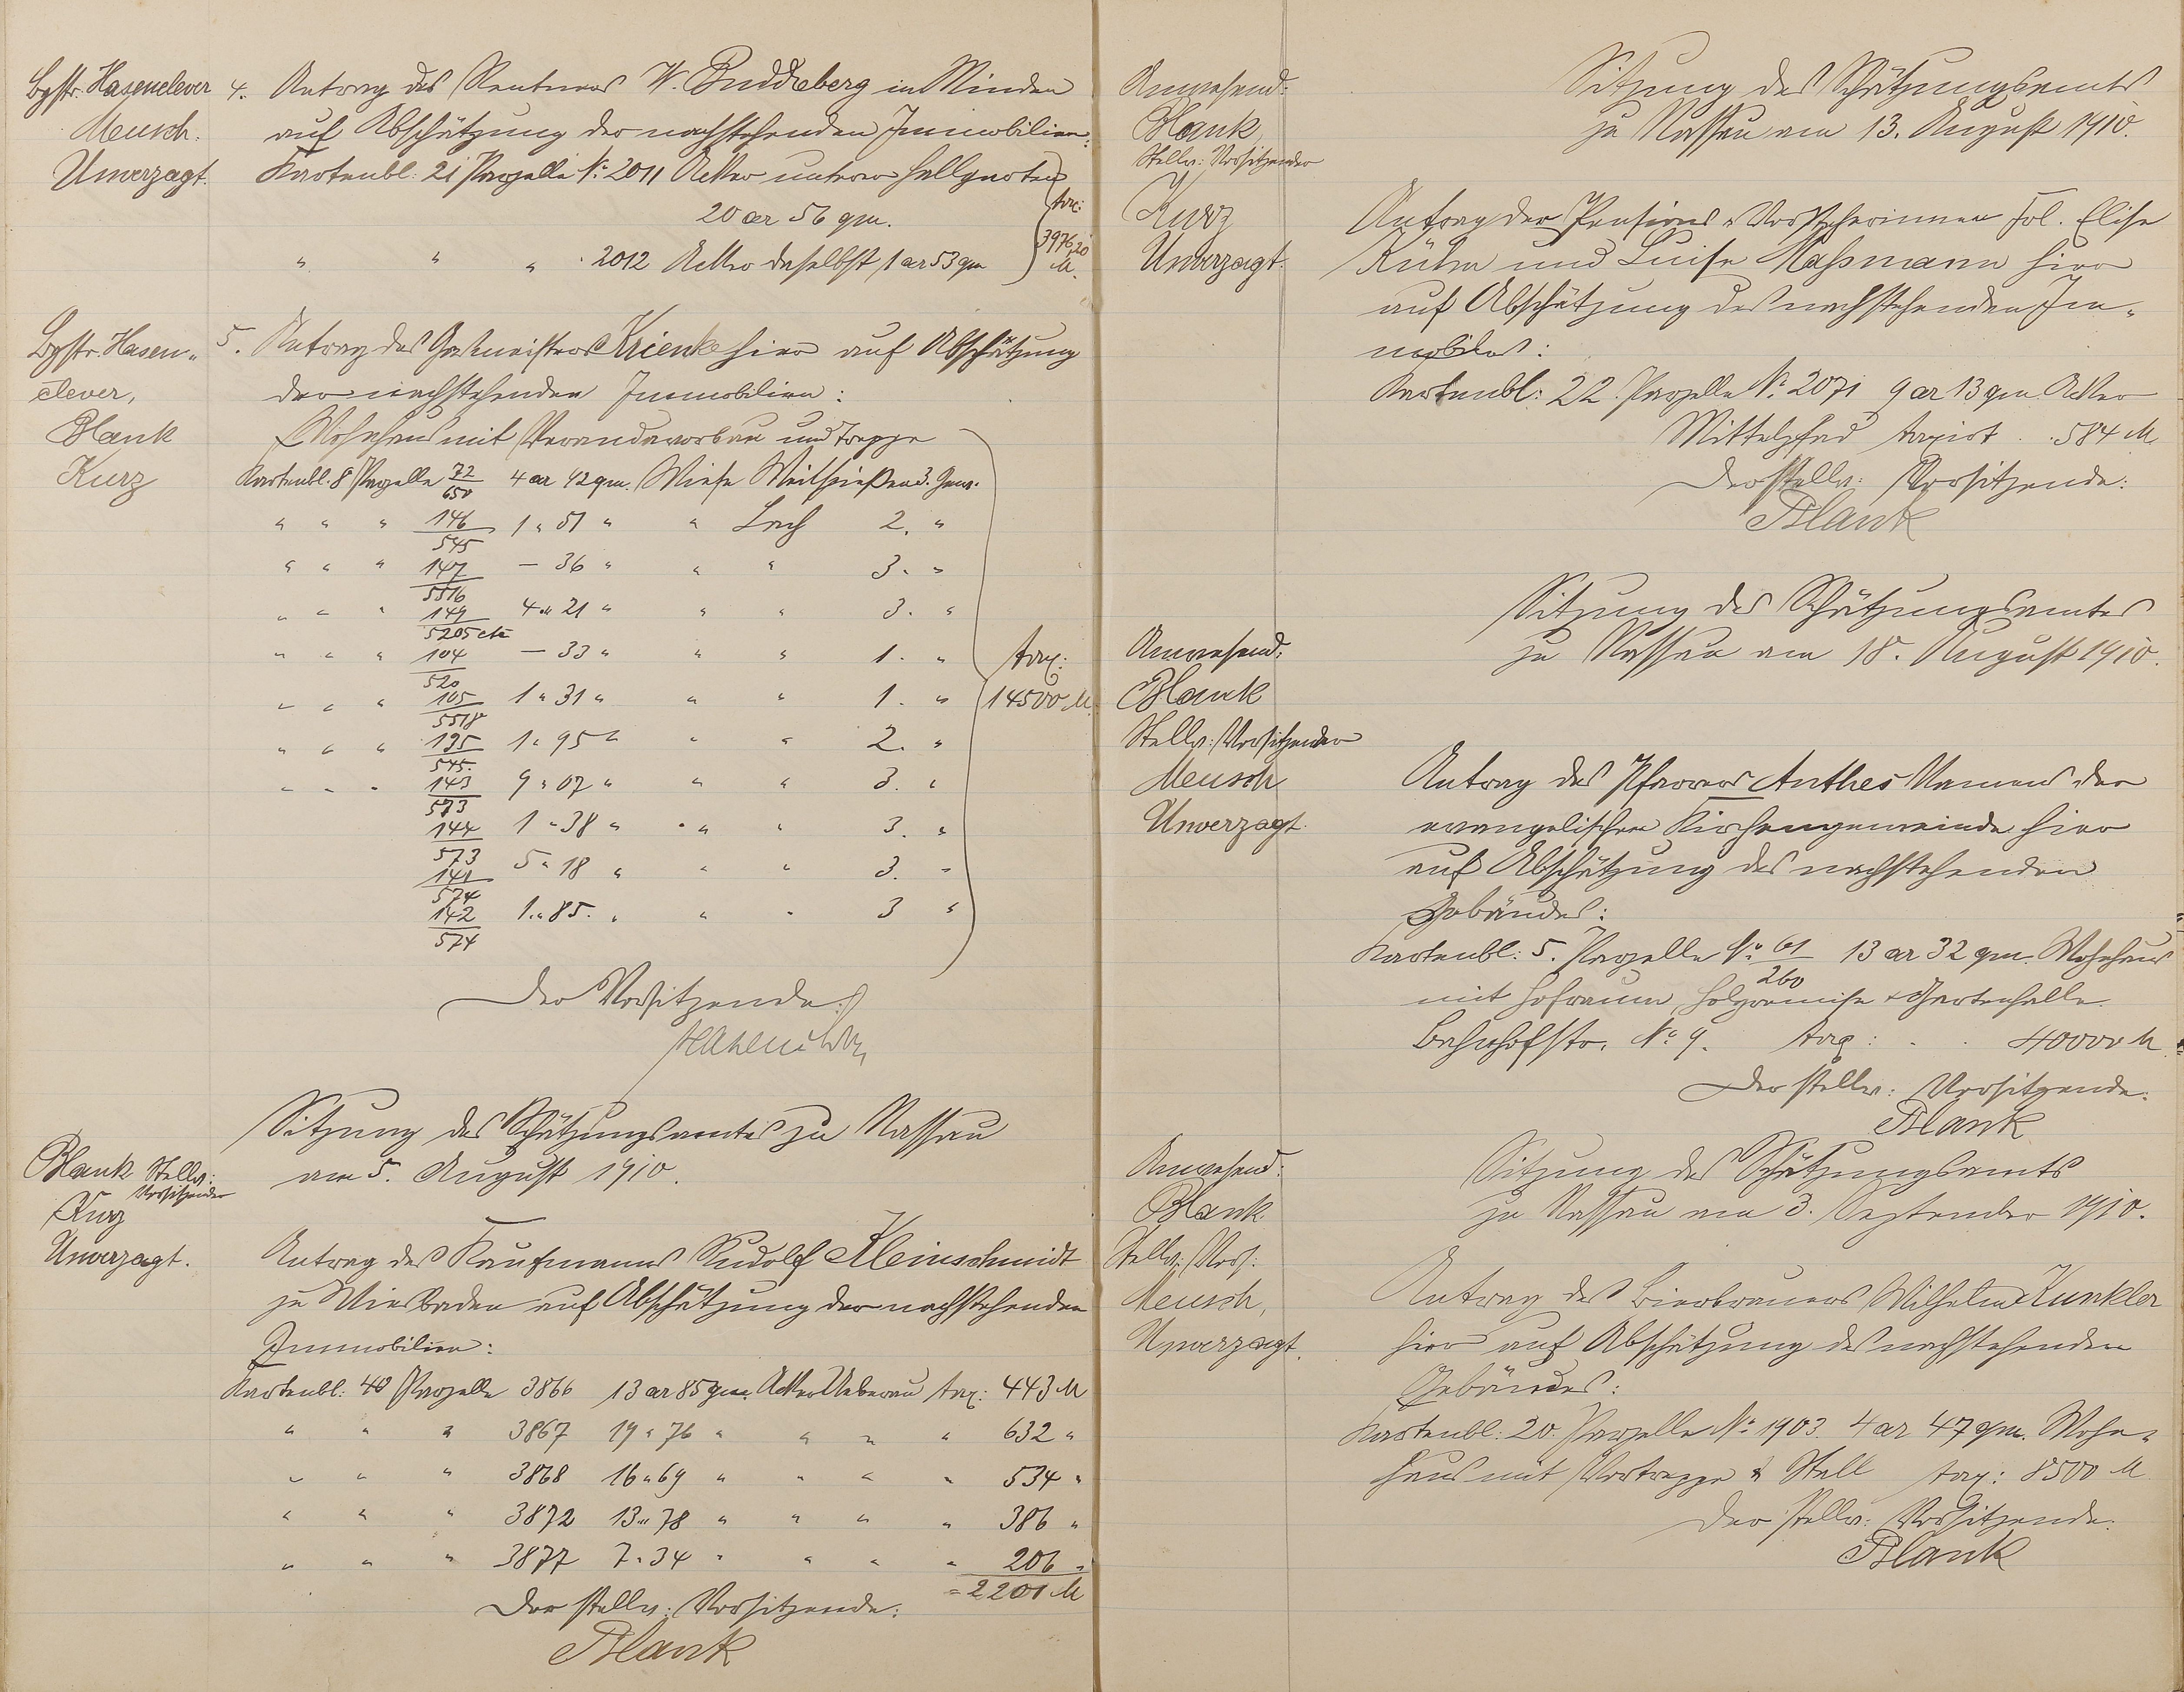 Bgstr. Hasenclever
Meusch.
Unverzagt.
4. Antrag des Rentners W. Buddeberg in Minden
auf Abschätzung der nachstehenden Immobilien:
Kartenbl: 21 Parzelle №: 2011 Acker unterer Hallgarten
20 ar 56 qm.
" " " 2012 Acker daselbst 1 ar 53 qm
tax:
3976,20
M.
Bgstr. Hasen-
clever,
Blank
Kurz
5. Antrag des Gasmeisters Krienke hier auf Abschätzung
der nachstehenden Immobilien:
Wohnhaus mit Verandavorbau und Treppe
Kartenbl. 8 Parzelle 72/650 4 ar 42 qm. Wiese 3. Gew.
" " " 146/545 1 " 51 " " Lach 2. "
" " " 147/5516 – 36 " " " 3. "
" " " 149/5205 etc 4 " 21 " " " 3. "
" " " 104/520 – 33 " " " 1. "
" " " 105/5518 1 " 31 " " " 1. "
" " " 135/545. 1 " 95 " " " 2. "
" " " 143/573 9 " 07 " " " 3. "
144/573 1 " 38 " " " 3. "
141/574 5 " 18 " " " 3. "
142/574 1 " 85. " " " 3 "
tax:
14500 M.
Der Vorsitzende:
Hasenclever
Sitzung des Schätzungsamtes zu Nassau
am 5. August 1910.
Blank Stellv:
Vorsitzender
Kurz
Unverzagt.
Antrag des Kaufmanns Rudolf Kleinschmidt
zu Wiesbaden auf Abschätzung der nachstehenden
Immobilien:
Kartenbl: 40 Parzelle 3866 13 ar 85 qm. Acker Ueberau tax: 443 M
" " " 3867 19 " 76 " " " " 632 "
" " " 3868 16 " 69 " " " " 534 "
" " " 3872 13 " 78 " " " " 386 "
" " " 3877 7 " 34 " " " " 206 "
= 2201 M
Der stellv: Vorsitzende:
Blank
Anwesend:
Blank
Stellv: Vorsitzender
Kurz
Unverzagt.
Sitzung des Schätzungsamts
zu Nassau am 13. August 1910.
Antrag der Pensions-Vorsteherinnen Frl. Elise
Kühn und Luise Maßmann hier
auf Abschätzung des nachstehenden Im-
mobils:
Kartenbl: 22. Parzelle №: 2071 9 ar 13 qm Acker
Mittelpfad taxirt . . 584 M.
Der stellv: Vorsitzende:
Blank
Sitzung des Schätzungsamtes
zu Nassau am 18. August 1910.
Anwesend:
Blank
Stellv: Vorsitzender
Meusch
Unverzagt.
Antrag des Pfarrers Anthes Namens der
evangelischen Kirchengemeinde hier
auf Abschätzung des nachstehenden
Gebäudes:
Kartenbl: 5. Parzelle №: 61/260 13 ar 32 qm. Wohnhaus
mit Hofraum, Holzremise & Gartenhalle.
Bahnhofstr. №: 9. tax: . . 40000 M
Der stellv: Vorsitzende:
Blank
Anwesend:
Blank
Stellv: Vors:
Meusch,
Unverzagt.
Sitzung des Schätzungsamts
zu Nassau am 3. September 1910.
Antrag des Bierbrauers Wilhelm Kunkler
hier auf Abschätzung des nachstehenden
Gebäudes:
Kartenbl: 20. Parzelle №: 1903. 4 ar 47 qm. Wohn-
haus mit Vortreppe & Stall tax: 8500 M
Der stellv: Vorsitzende.
Blank